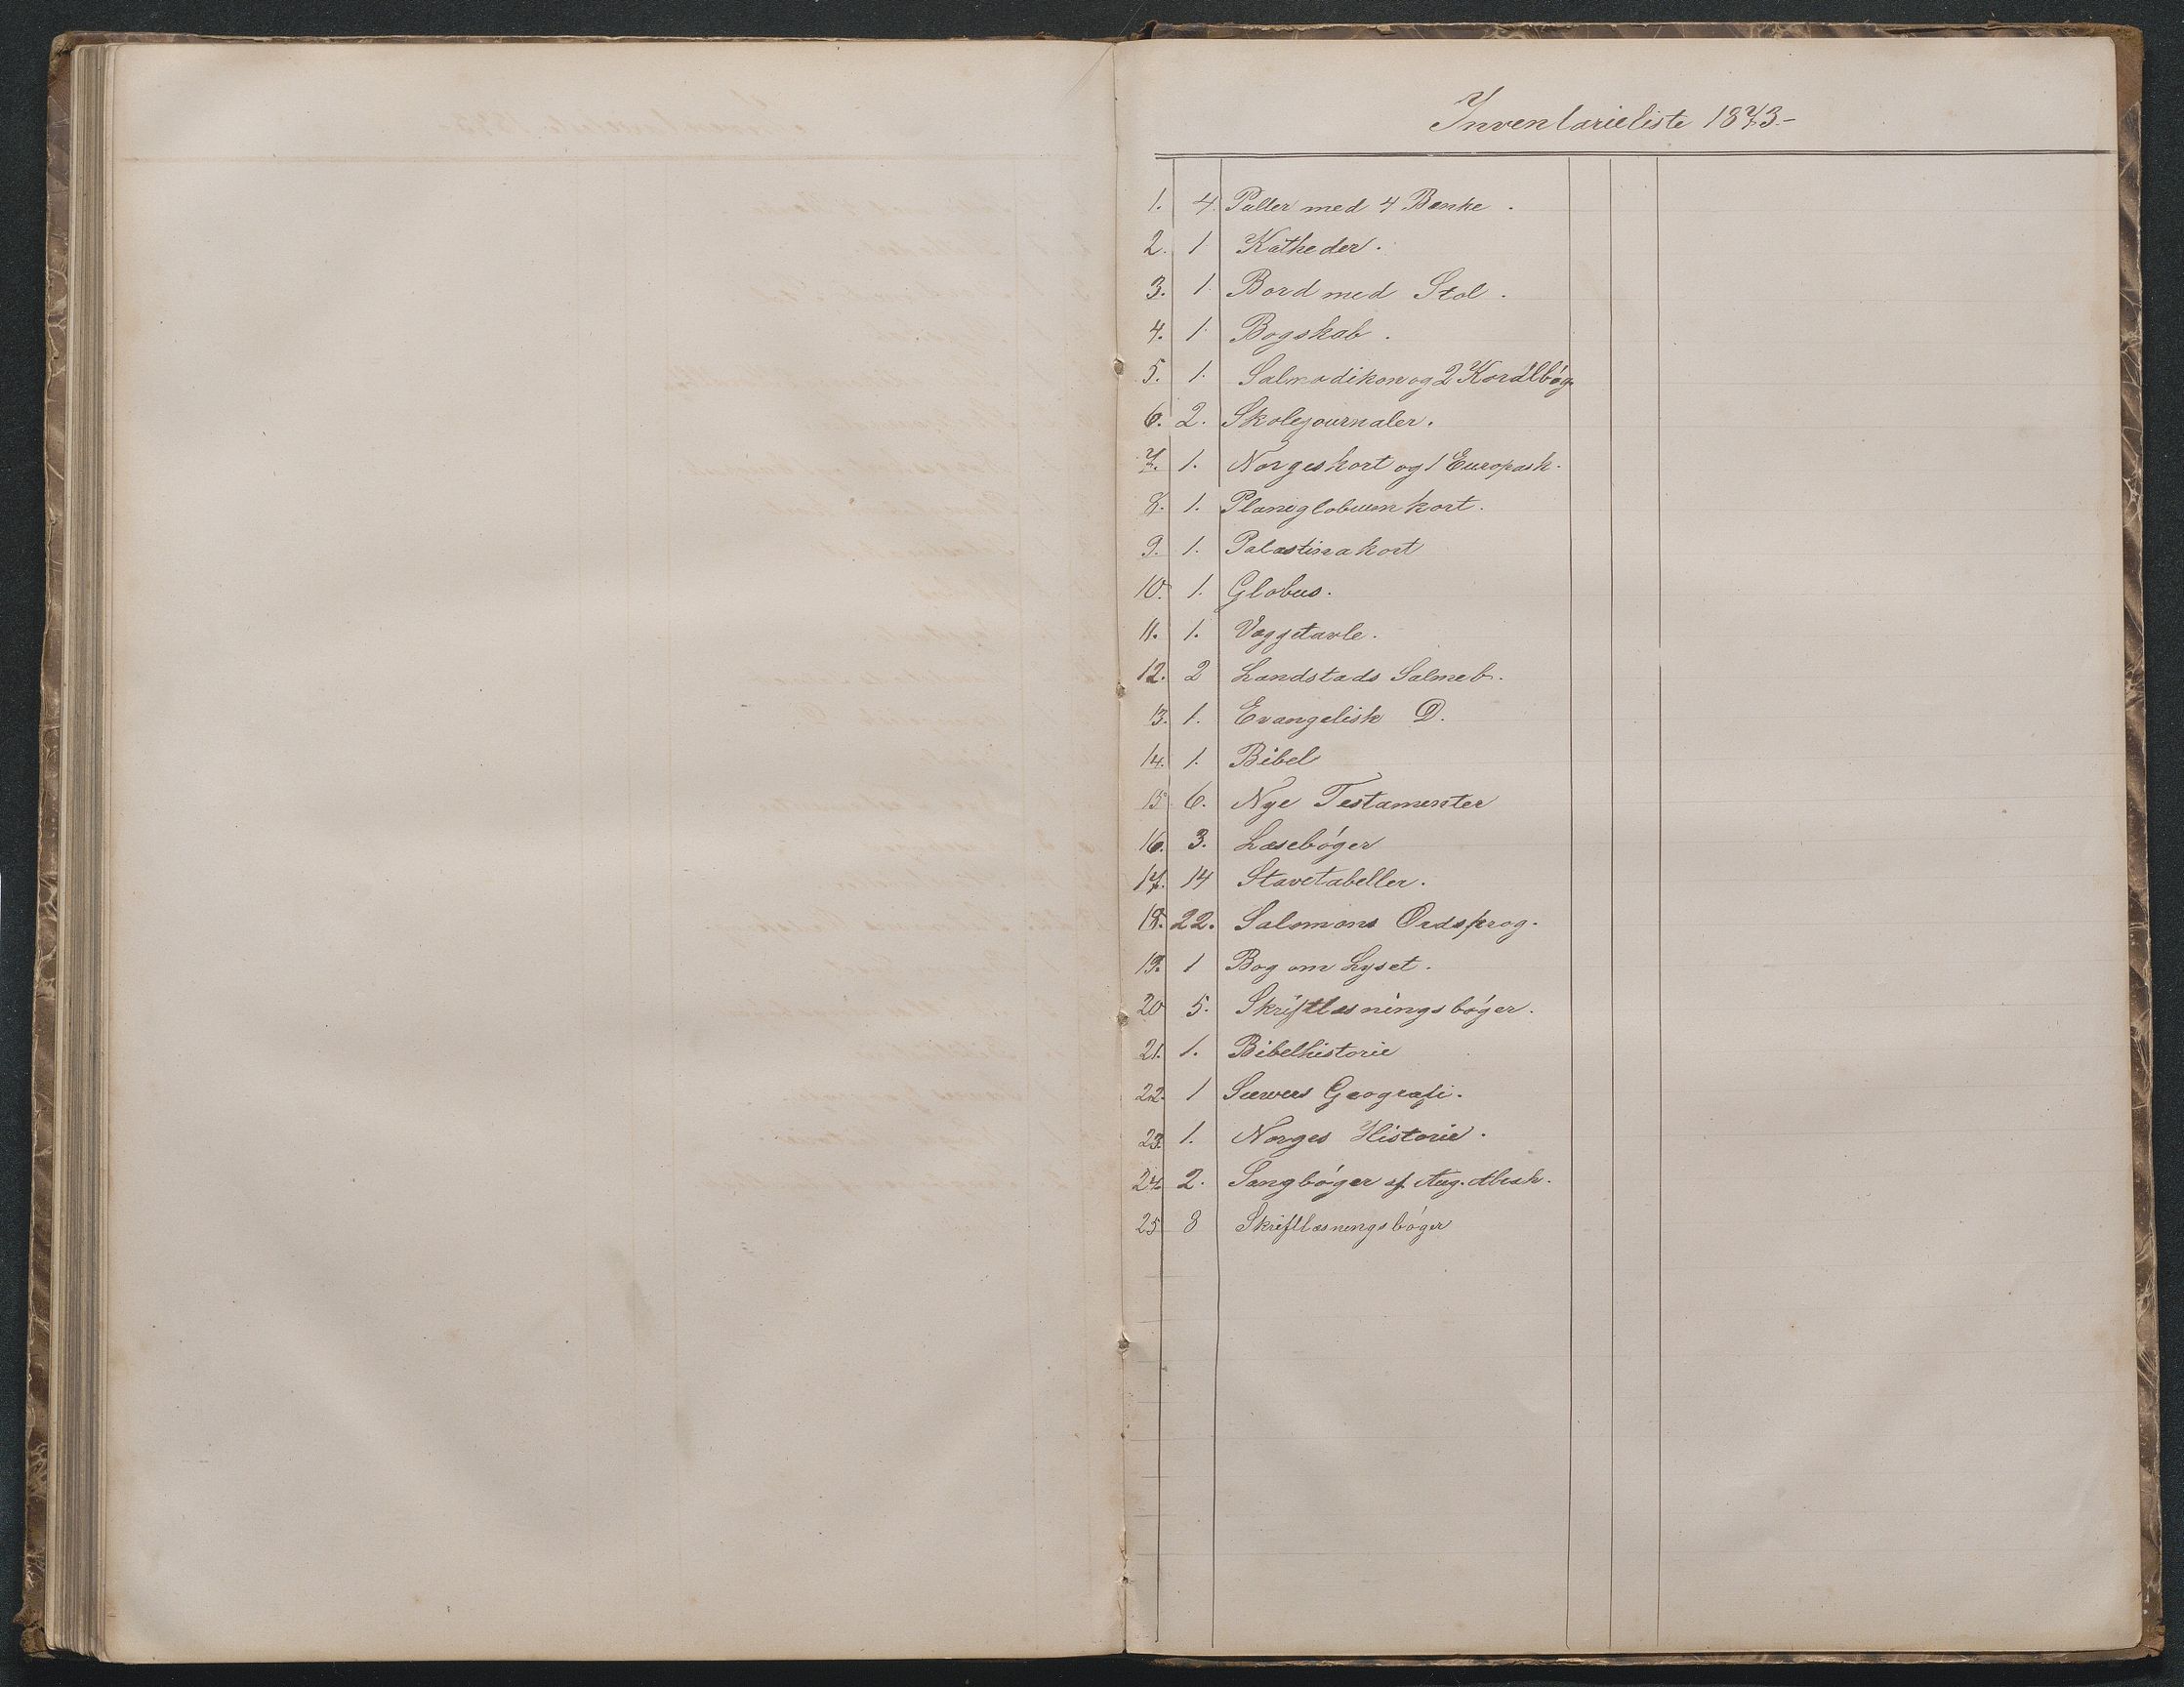 Inventarieliste 1873.-
1. 4. Pulter med 4 Bænke.
2. 1 Katheder.
3. 1. Bord med Stol.
4. 1. Bogskab.
5. 1. Salmodikon og 2 Koralbøg.
6. 2. Skolejournaler.
7. 1. Norgeskort og 1 Europask.
8. 1. Planiglobuumkort.
9. 1. Palæstinakort
10. 1. Globus.
11. 1. Væggetavle.
12. 2 Landstads Salmeb.
13. 1. Evangelisk D.
14. 1. Bibel
15. 6. Nye Testamenter
16. 3. Læsebøger
17. 14 Stavetabeller.
18. 22. Salomons Ordsprog.
19. 1 Bog om Lyset.
20 5. Skriftlæsningsbøger.
21. 1. Bibelhistorie
22. 1 Geografi.
23. 1. Norges Historie.
24. 2. Sangbøger af Aug.
25 8 Skriftlæsningsbøger